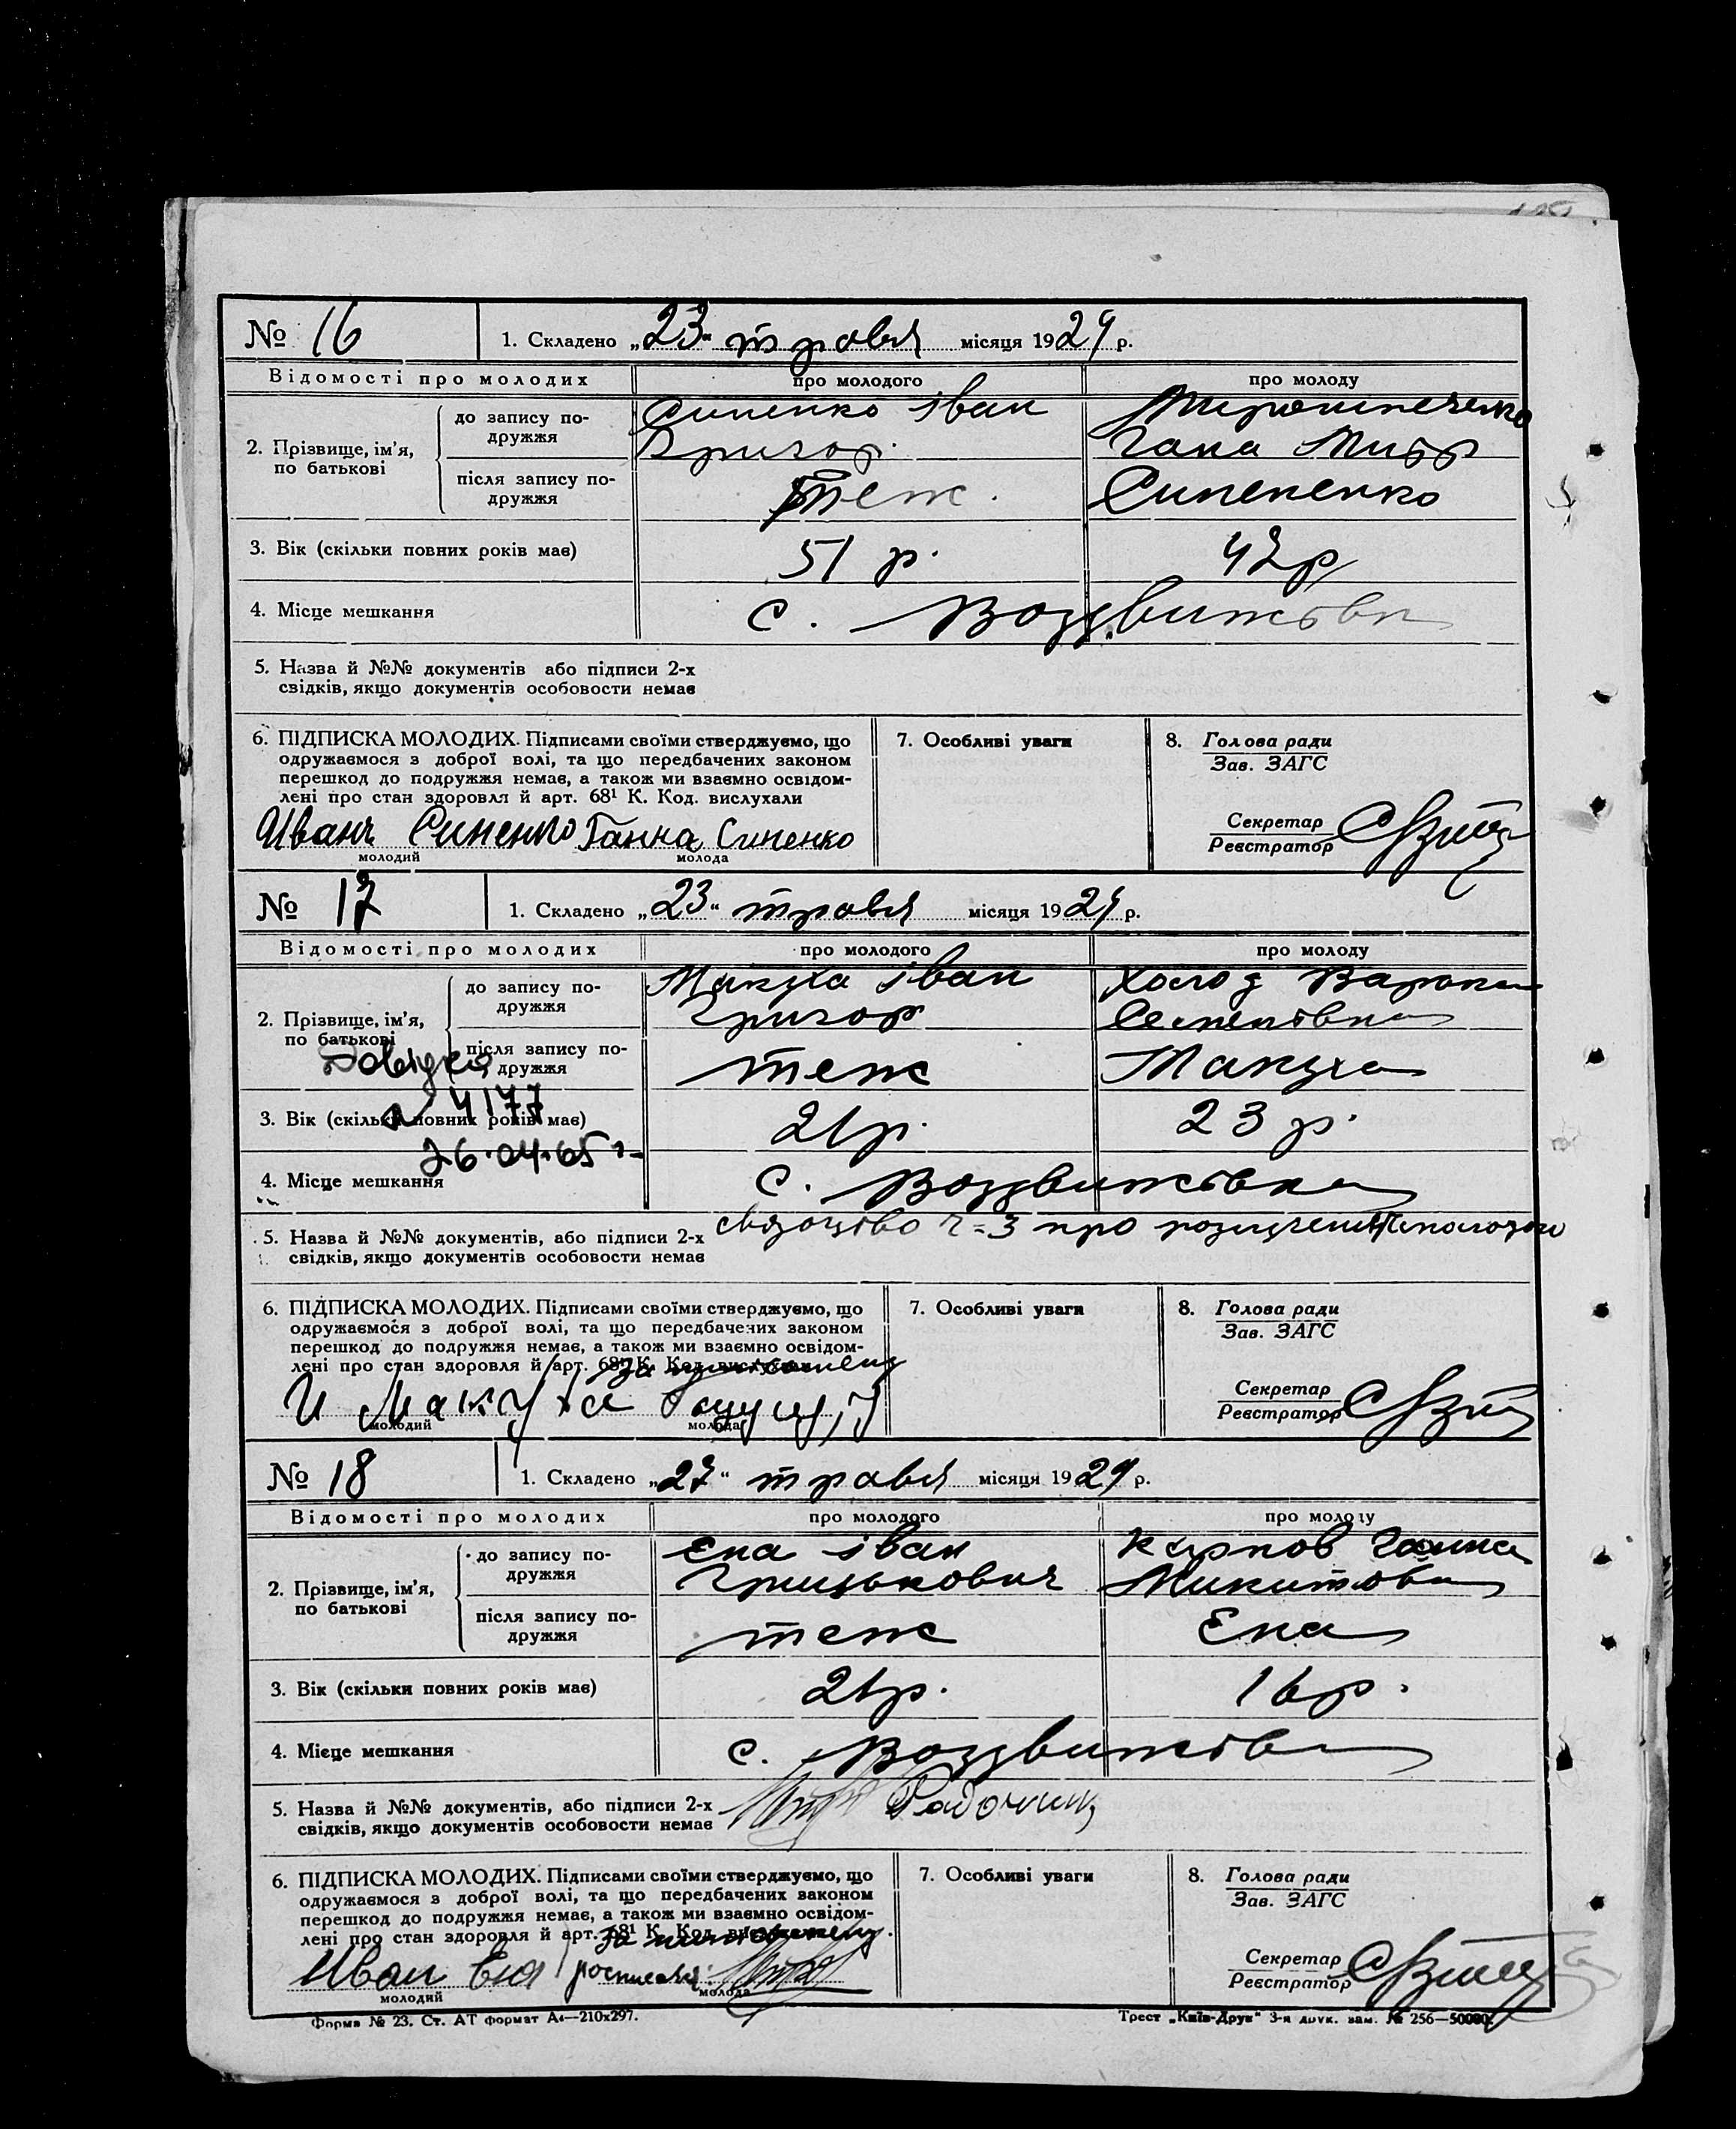 № 16
1. Складено „23“ травня місяця 1929 р.
Відомості про молодих
про молодого
про молоду
2. Прізвище, ім'я, по батькові
до запису подружжя
Синенко Іван
Григор.
Мирошниченко
Гана Митр
після запису подружжя
теж.
Синененко
3. Вік (скільки повних років має)
51 р.
42 р
4. Місце мешкання
с. Воздвижівка
5. Назва й №№ документів або підписи 2-х
свідків, якщо документів особовости немає
6. ПІДПИСКА МОЛОДИХ. Підписами своїми стверджуємо, що
одружаємося з доброї волі, та що передбачених законом
перешкод до подружжя немає, а також ми взаємно освідом-
лені про стан здоровля й арт. 68¹ К. Код. вислухали
Иванъ Синенко Ганна Синенко
молодий
молода
7. Особливі уваги
8. Голова ради
Зав. ЗАГС
Секретар
Реєстратор
№ 17
1. Складено „23“ травня місяця 1929 р.
Відомості про молодих
про молодого
про молоду
2. Прізвище, ім'я,
по батькові
до запису по-
дружжя
Макуха Іван
Григор
Холод Варка
Семенівна
після запису по-
дружжя
теж
Макуха
Довідка
№ 4177
26.04.65 г.
3. Вік (скільки повних років має)
21 р.
23 р.
4. Місце мешкання
с. Воздвижівка
5. Назва й №№ документів, або підписи 2-х
свідків, якщо документів особовости немає
свідоцтво ч=3 про
6. ПІДПИСКА МОЛОДИХ. Підписами своїми стверджуємо, що
одружаємося з доброї волі, та що передбачених законом
перешкод до подружжя немає, а також ми взаємно освідом-
лені про стан здоровля й арт. 68¹ К. Код. вислухали
И Макуха
молодий
молода
7. Особливі уваги
8. Голова ради
Зав. ЗАГС
Секретар
Реєстратор
№ 18
1. Складено „27“ травня місяця 1929 р.
Відомості про молодих
про молодого
про молоду
2. Прізвище, ім'я,
по батькові
до запису по-
дружжя
Єна Іван
Грицькович
Карпов Ганна
Микитовна
після запису по-
дружжя
теж
Єна
3. Вік (скільки повних років має)
21 р.
16 р.
4. Місце мешкання
с. Воздвижівка
5. Назва й №№ документів, або підписи 2-х
свідків, якщо документів особовости немає
6. ПІДПИСКА МОЛОДИХ. Підписами своїми стверджуємо, що
одружаємося з доброї волі, та що передбачених законом
перешкод до подружжя немає, а також ми взаємно освідом-
лені про стан здоровля й арт. 68¹ К. Код.
Иван Єна
молодий
молода
7. Особливі уваги
8. Голова ради
Зав. ЗАГС
Секретар
Реєстратор
Форма № 23. Ст. АТ формат А₄—210x297.
Трест „Київ-Друк“ 3-я друк. зам. № 256—50000.